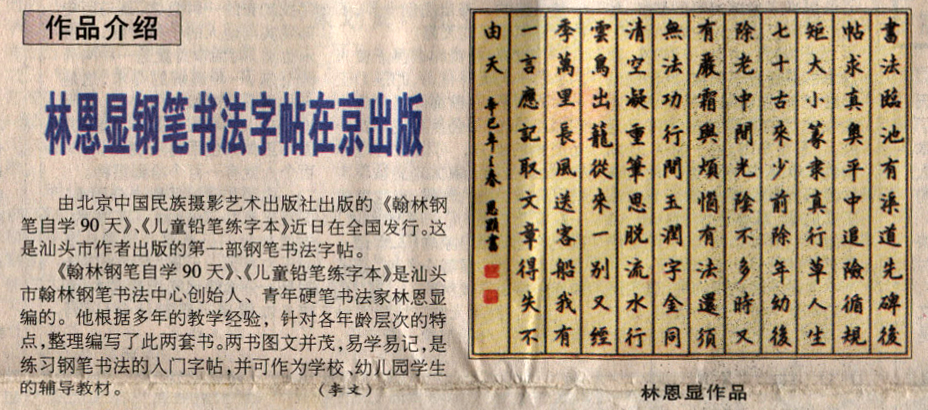 作品介绍
林恩显钢笔书法字帖在京出版
由北京中国民族摄影艺术出版社出版的《翰林钢
笔自学90天》、《儿童铅笔练字本》近日在全国发行。这
是汕头市作者出版的第一部钢笔书法字帖。
《翰林钢笔自学90天》、《儿童铅笔练字本》是汕头
市翰林钢笔书法中心创始人、青年硬笔书法家林恩显
编的。他根据多年的教学经验，针对各年龄层次的特
点，整理编写了此两套书。两书图文并茂，易学易记，是
练习钢笔书法的入门字帖，并可作为学校、幼儿园学生
的辅导教材。（李文）
書法臨池有渠道先碑後
帖求真奥平中追險循規
矩大小篆隶真行草人生
七十古來少前除年幼後
除老中間光陰不多時又
有嚴霜與煩惱有法還須
無法功行間玉潤字金同
清空凝重筆思脱流水行
雲鳥出籠從來一别又經
季萬里長風送客船我有
一言應記取文章得失不
由天 辛巳年之春 恩顯書
林恩显作品